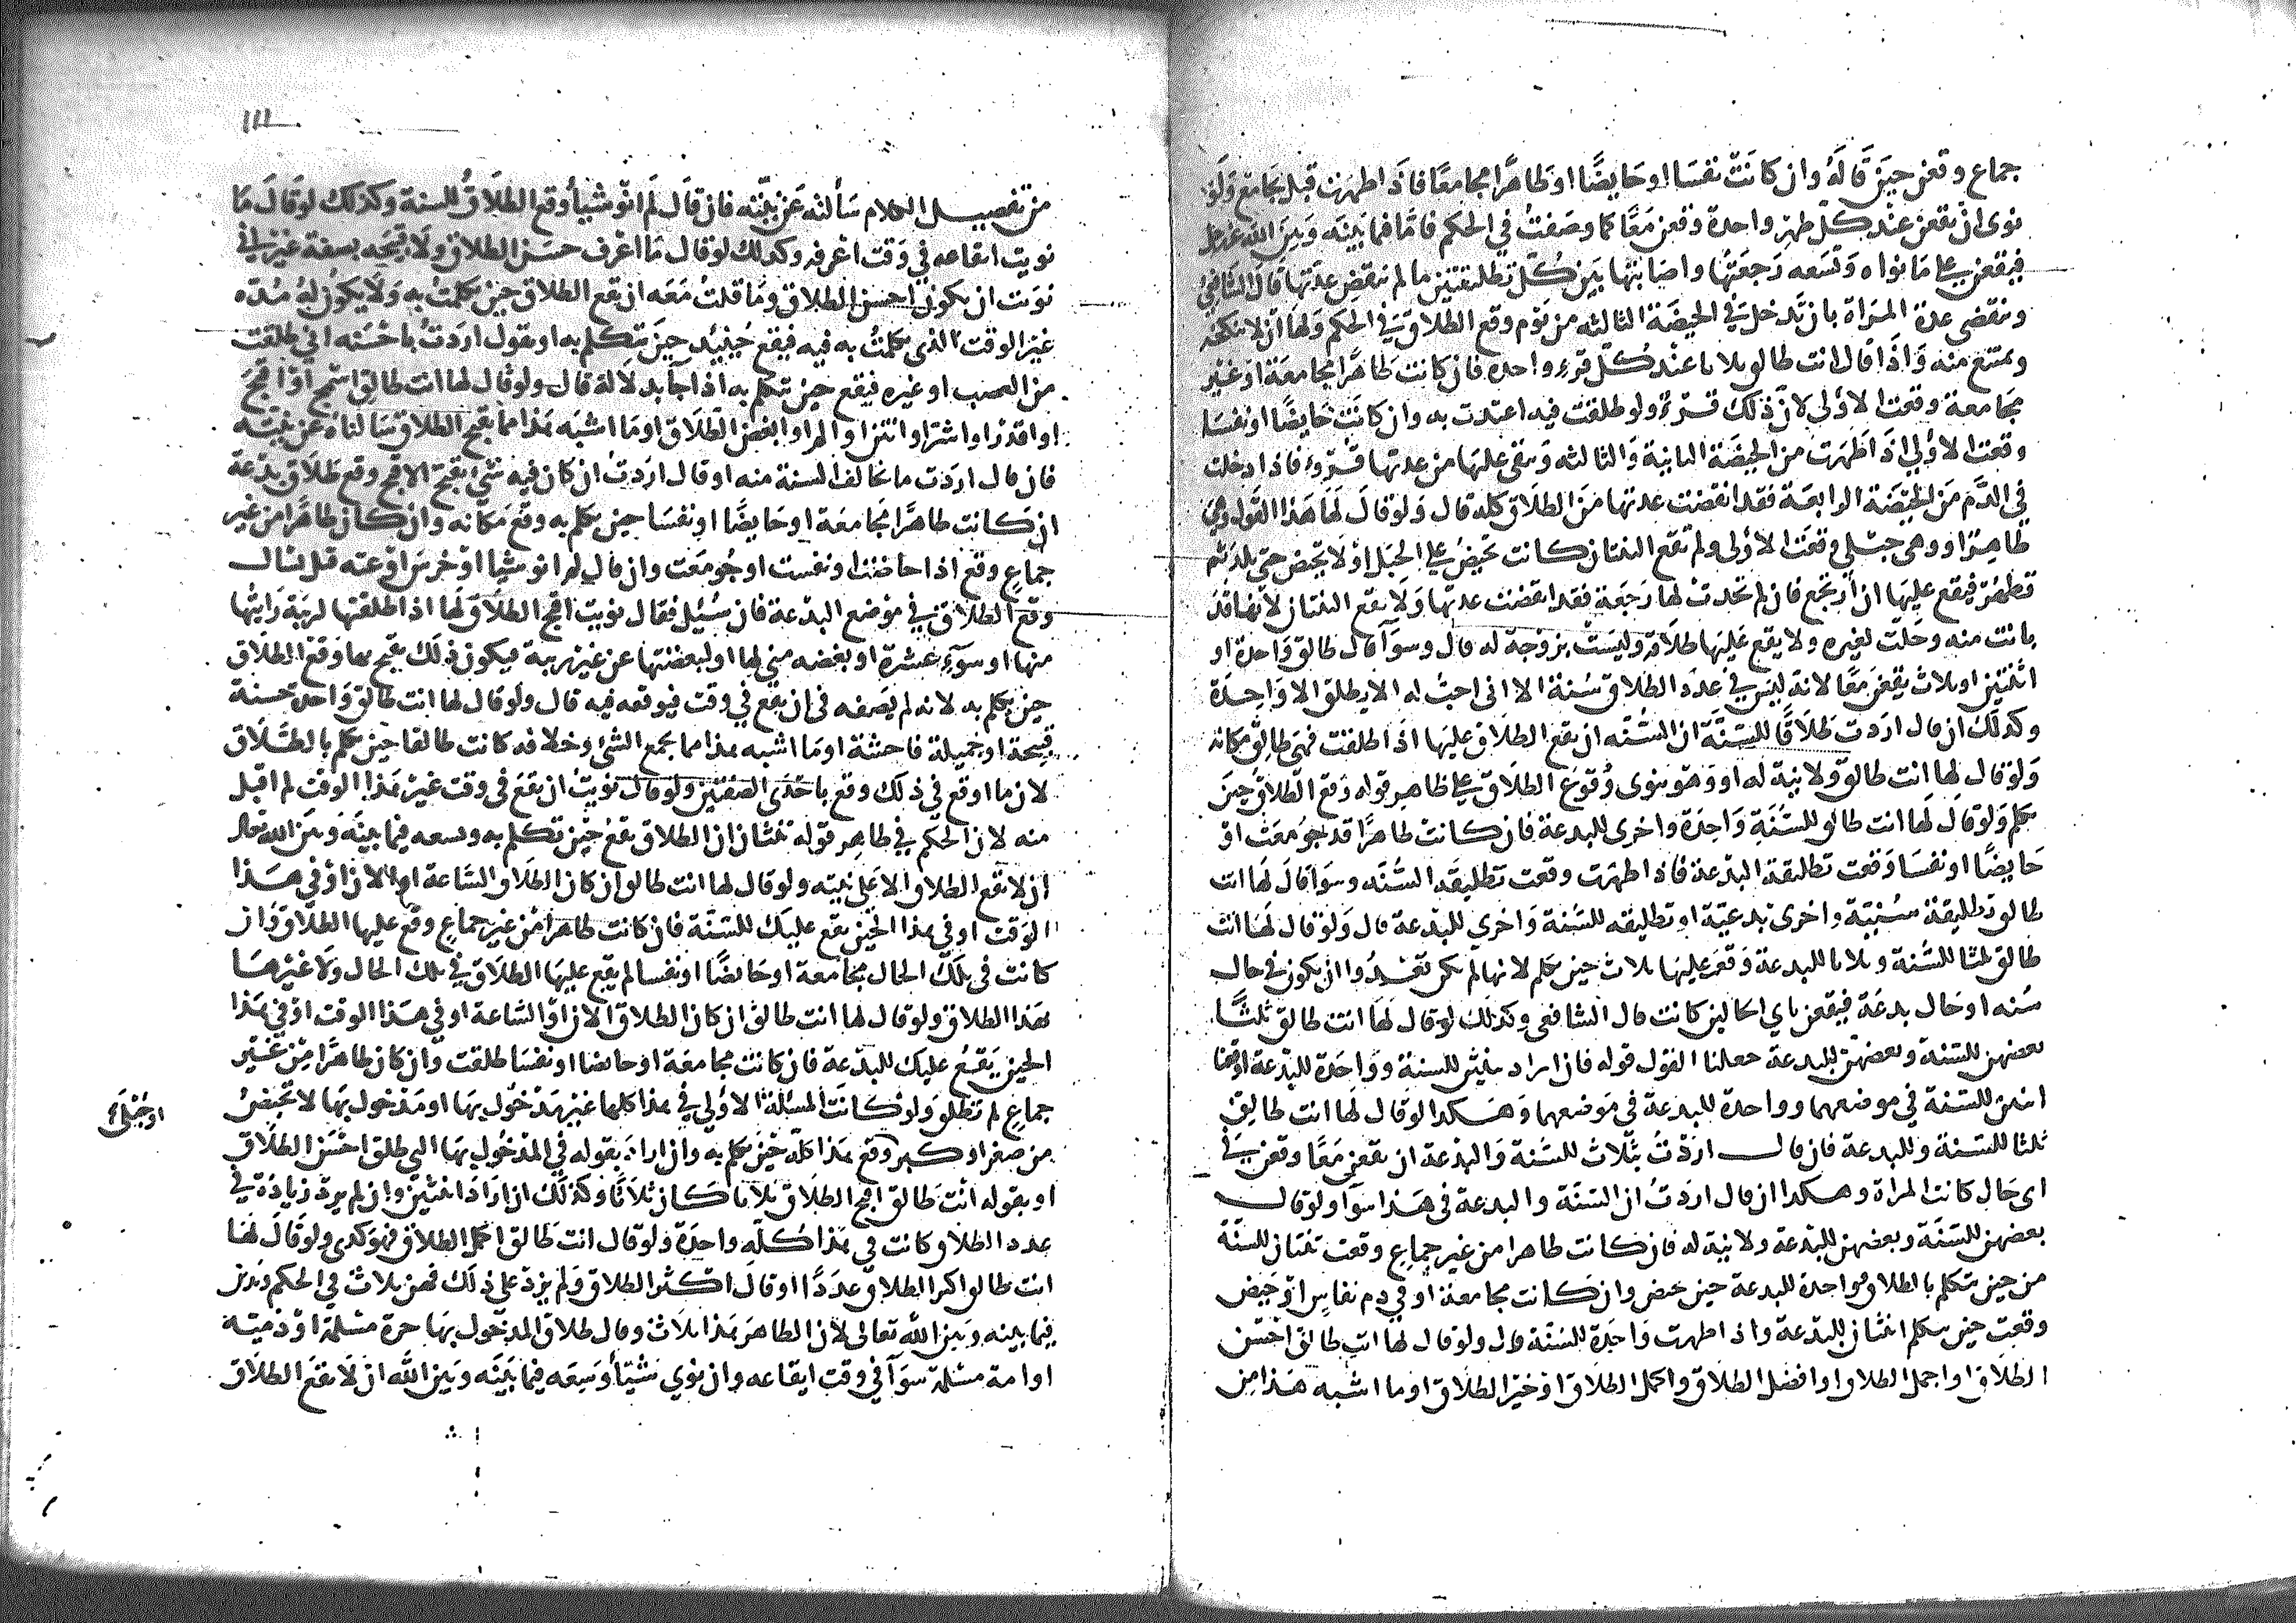 جماع وقعن حين قاله وان كانت نفسا او حايضًا او طاهرًا مجامعًا فاذا طهرت قبل تجامع ولو
نوى ان يقعن عند كل طهر واحدة وقعن معًا كما وصفت في الحكم فاما فما بينه وبين الله عز وجل
فيقعن على ما نواه وتسعه رجعتها واصابتها بين كل تطليقتين ما لم تنقض عدتها قال الشافعي
وتنقضي عدة المراة بان تدخل في الحيضة الثالثه من يوم وقع الطلاق في الحكم ولها ان لا تنكحه
وتمتنع منه واذا قال انت طالق ثلاثا عند كل قرء واحده فان كانت طاهرًا مجامعة او غير
مجامعة وقعت الاولى لان ذلك قرءٌ ولو طلقت فيه اعتدت به وان كانت حايضًا او نفسا
وقعت الاولى اذا طهرت من الحيضة الثانية والثالثه ويبقى عليها من عدتها قروء فاذا دخلت
في الدم من الحيضة الرابعة فقد انقضت عدتها من الطلاق كله قال ولو قال لها هذا القول وهي
طاهر او وهي حبلى وقعت الاولى ولم تقع الثنتان كانت تحيض على الحبل او لا تحيض حتى تلد ثم
تطهر فيقع عليها ان ارتجع فان لم تحدث لها رجعة فقد انقضت عدتها ولا يقع الثنتان لانها قد
بانت منه وحلت لغيره ولا يقع عليها طلاقه وليست بزوجة له قال وسوآ قال طالق واحدة او
اثنتين او ثلاث يقعن معًا لانه ليس في عدد الطلاق سنة الا انى احب له الا يطلق الا واحدة
وكذلك ان قال اردت طلاقًا للسنة ان السنه ان يقع الطلاق عليها اذا طلقت فهي طالق مكانه
ولو قال لها انت طالق ولا نية له او وهو ينوى وقوع الطلاق على ظاهر قوله وقع الطلاق حين
تكلم ولو قال لها انت طالق للسنة واحدة واخرى للبدعة فان كانت طاهرًا قد جومعت او
حايضًا او نفسا وقعت تطليقة البدعة فاذا طهرت وقعت تطليقة السنه وسوآ قال لها انت
طالق تطليقة سنية واخرى بدعية او تطليقه للسنة واخرى للبدعة قال ولو قال لها انت
طالق ثلثا للسنة وثلاثا للبدعة وقع عليها ثلاث حين تكلم لانها لم تكن تعدوا ان تكون في حال
سنه او حال بدعة فيقعن باي الحالين كانت قال الشافعي وكذلك لو قال لها انت طالق ثلثًا
بعضهن للسنة وبعضهن للبدعة جعلنا القول قوله فان اراد ثنتين للسنة وواحدة للبدعة اوقعنا
اثنتين للسنة في موضعهما وواحدة للبدعة في موضعهما وهكذا لو قال لها انت طالق
ثلثا للسنة وللبدعة فان قال اردت بثلاث للسنة والبدعة ان يقعن معًا وقعن في
اى حال كانت المراة وهكذا ان قال اردت ان السنة والبدعة في هذا سوآ ولو قال
بعضهن للسنة وبعضهن للبدعة ولا نية له فان كانت طاهرا من غير جماع وقعت ثنتان للسنة
من حين تكلم بالطلاق وواحدة للبدعة حين تحيض وان كانت مجامعة او في دم نفاس او حيض
وقعت حين تكلم اثنتان للبدعة واذا طهرت واحدة للسنة قال ولو قال لها انت طالق احسن
الطلاق او اجمل الطلاق او افضل الطلاق او اكمل الطلاق او خير الطلاق او ما اشبه هذا من
١١١
من تفضيل الكلام سألته عن نيته فان قال لم انو شيأ وقع الطلاق للسنة وكذلك لو قال ما
نويت ايقاعه في وقت اعرفه وكذلك لو قال ما اعرف حسن الطلاق ولا قبيحه بصفة غير اني
نويت ان يكون احسن الطلاق وما قلت معه ان يقع الطلاق حين تكلمت به ولا يكون له مده
غير الوقت الذى تكلمت به فيه فيقع حينئذ حين تكلم به او يقول اردت باحسنه اني طلقت
من الغضب او غيره فيقع حين تكلم به اذا جآ بدلالة قال ولو قال لها انت طالق اسمج او اقبح
او اقذر او اشر او انتن او المر او ابغض الطلاق او ما اشبه هذا مما يقبح الطلاق سالناه عن نيته
فان قال اردت ما يخالف السنة منه او قال اردت ان كان فيه شئ يقبح الاقبح وقع طلاق بدعة
ان كانت طاهرًا مجامعة او حايضًا او نفسا حين تكلم به وقع مكانه وان كان طاهرًا من غير
جماع وقع اذا حاضت او نفست او جومعت وان قال لم انو شيا او خرس او عته قبل نسال
وقع الطلاق في موضع البدعة فان سئيل فقال نويت اقبح الطلاق لها اذا طلقتها لريبة رايتها
منها او سوء عشرة او بغضه مني لها او لبعضتها عن غير ريبة فيكون ذلك يقبح بها وقع الطلاق
حين تكلم به لانه لم يصفه في ان يقع في وقت فيوقعه فيه قال ولو قال لها انت طالق واحدة حسنة
قبيحة او جميلة فاحشة او ما اشبه هذا مما يجمع الشئ وخلافه كانت طالقا حين تكلم بالطلاق
لان ما اوقع في ذلك وقع باحدى الصفتين ولو قال نويت ان يقع في وقت غير هذا الوقت لم اقبل
منه لان الحكم في ظاهر قوله ثنتان ان الطلاق يقع حين تكلم به ويسعه فيما بينه وبين الله تعالى
ان لا يقع الطلاق الا على نيته ولو قال لها انت طالق ان كان الطلاق الساعة او الان او في هذا
الوقت او في هذا الحين يقع عليك للسنة فان كانت طاهرا من غير جماع وقع عليها الطلاق وان
كانت في تلك الحال مجامعة او حايضًا او نفسا لم يقع عليها الطلاق في تلك الحال ولا غيرها
بهذا الطلاق ولو قال لها انت طالق ان كان الطلاق الان او الساعة او في هذا الوقت او في هذا
الحين يقع عليك للبدعة فان كانت مجامعة او حايضا او نفسا طلقت وان كان طاهرًا من غير
جماع لم تطلق ولو كانت المسئلة الاولى في هذا كلها غير مدخول بها او مدخول بها لا تحيض
او حبلى
من صغر او كبر وقع هذا كله حين تكلم به وان اراد بقوله في المدخول بها التي طلق احسن الطلاق
او بقوله انت طالق اقبح الطلاق ثلاثا كان ثلاثًا وكذلك ان اراد اثنتين وان لم يرد زيادة في
عدد الطلاق كانت في هذا كله واحدة ولو قال انت طالق اكمل الطلاق فهو كذى ولو قال لها
انت طالق اكثر الطلاق عددًا او قال اكثر الطلاق ولم يزد على ذلك فهن ثلاث في الحكم ويدين
فيما بينه وبين الله تعالى لان الظاهر هذا ثلاث وقال طلاق المدخول بها حرة مسلمة او ذمية
او امة مسلمة سوآ في وقت ايقاعه وان نوي شيئأ وسعه فيما بينه وبين الله ان لا يقع الطلاق